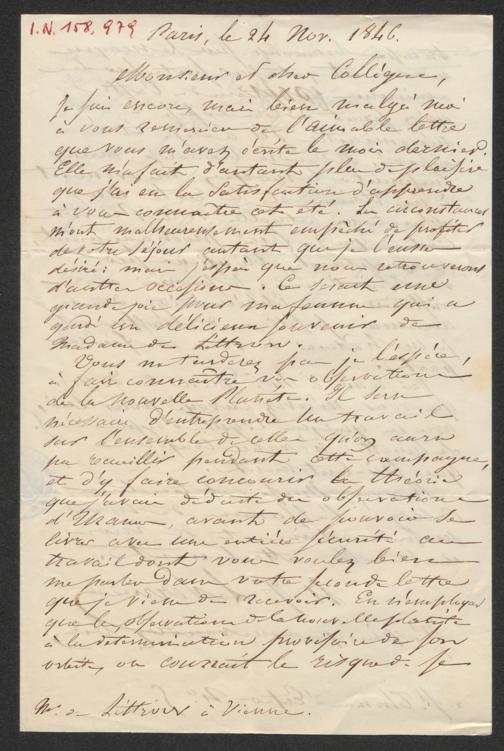 I.N. 158,979
Paris, le 24 Nov. 1846.
Monsieur et cher Collègue,
Je suis encore, mais bien malgré moi
à vous remercier de l'aimable lettre
que vous m'avez écrite le mois dernier.
Elle m'a fait d'autant plus de plaisir
que j'ai eu la satisfaction d'apprendre
à vous connaître cet été. Les circonstances
m'ont malheureusement empêché de profiter
de votre séjour autant que je l'eusse
désiré: mais j'espère que nous retrouverons
d'autres occasions. Ce serait une
grande joie pour ma femme qui a
gardé un délicieux souvenir de
Madame de Littrow.
Vous ne tarderez pas, je l'espère,
à faire connaître vos observations
de la nouvelle Planète. Il sera
nécessaire d'entreprendre un travail
sur l'ensemble de celles qu'on aura
pu recueillir pendant cette campagne,
et d'y faire concourir la théorie
que j'avais déduite des observations
d'Uranus, avant de pouvoir se
livrer avec une entière sécurité au
travail dont vous voulez bien
me parler dans votre seconde lettre
que je viens de recevoir. En n'employant
que les observations de la nouvelle planète
à la détermination provisoire de son
orbite, on courrait le risque de se
M. de Littrow à Vienne.